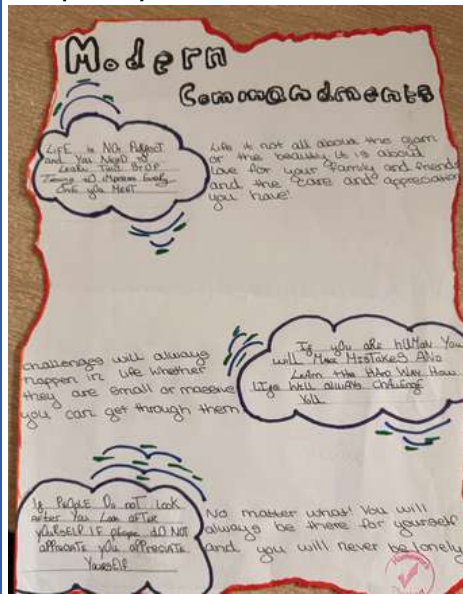 Modern
Commandments
LiFE is NOt Perfect
and You NEED to
Learn That StOP
Trying tO impress Every
One you MEET
Life it not all about the glam
or the beauty it is about
love for your family and friends
and the care and appreciation
you have!
challenges will always
happen in life whether
they are small or massive
you can get through them
If yOu aRe hUMAN You
will Make MisTakes AND
Learn tHe HArD WAy How
Life Well always Challenge
You
If PEOPLE Do noT Look
after You Look aFTER
yOuRseLF IF people dO NOT
appreciate yOu appreciate
YourselF
No matter what! You will
always be there for yourself
and you will never be lonely